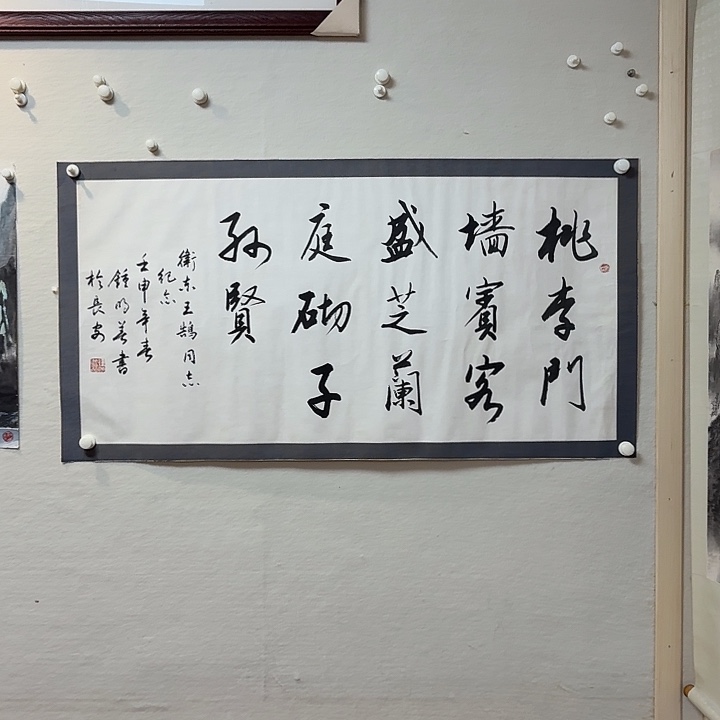 桃李門
墙賓客
盛芝蘭
庭砌子
孙賢
衛东王鵠同志
纪念
壬申年春
鍾明善書
於長安